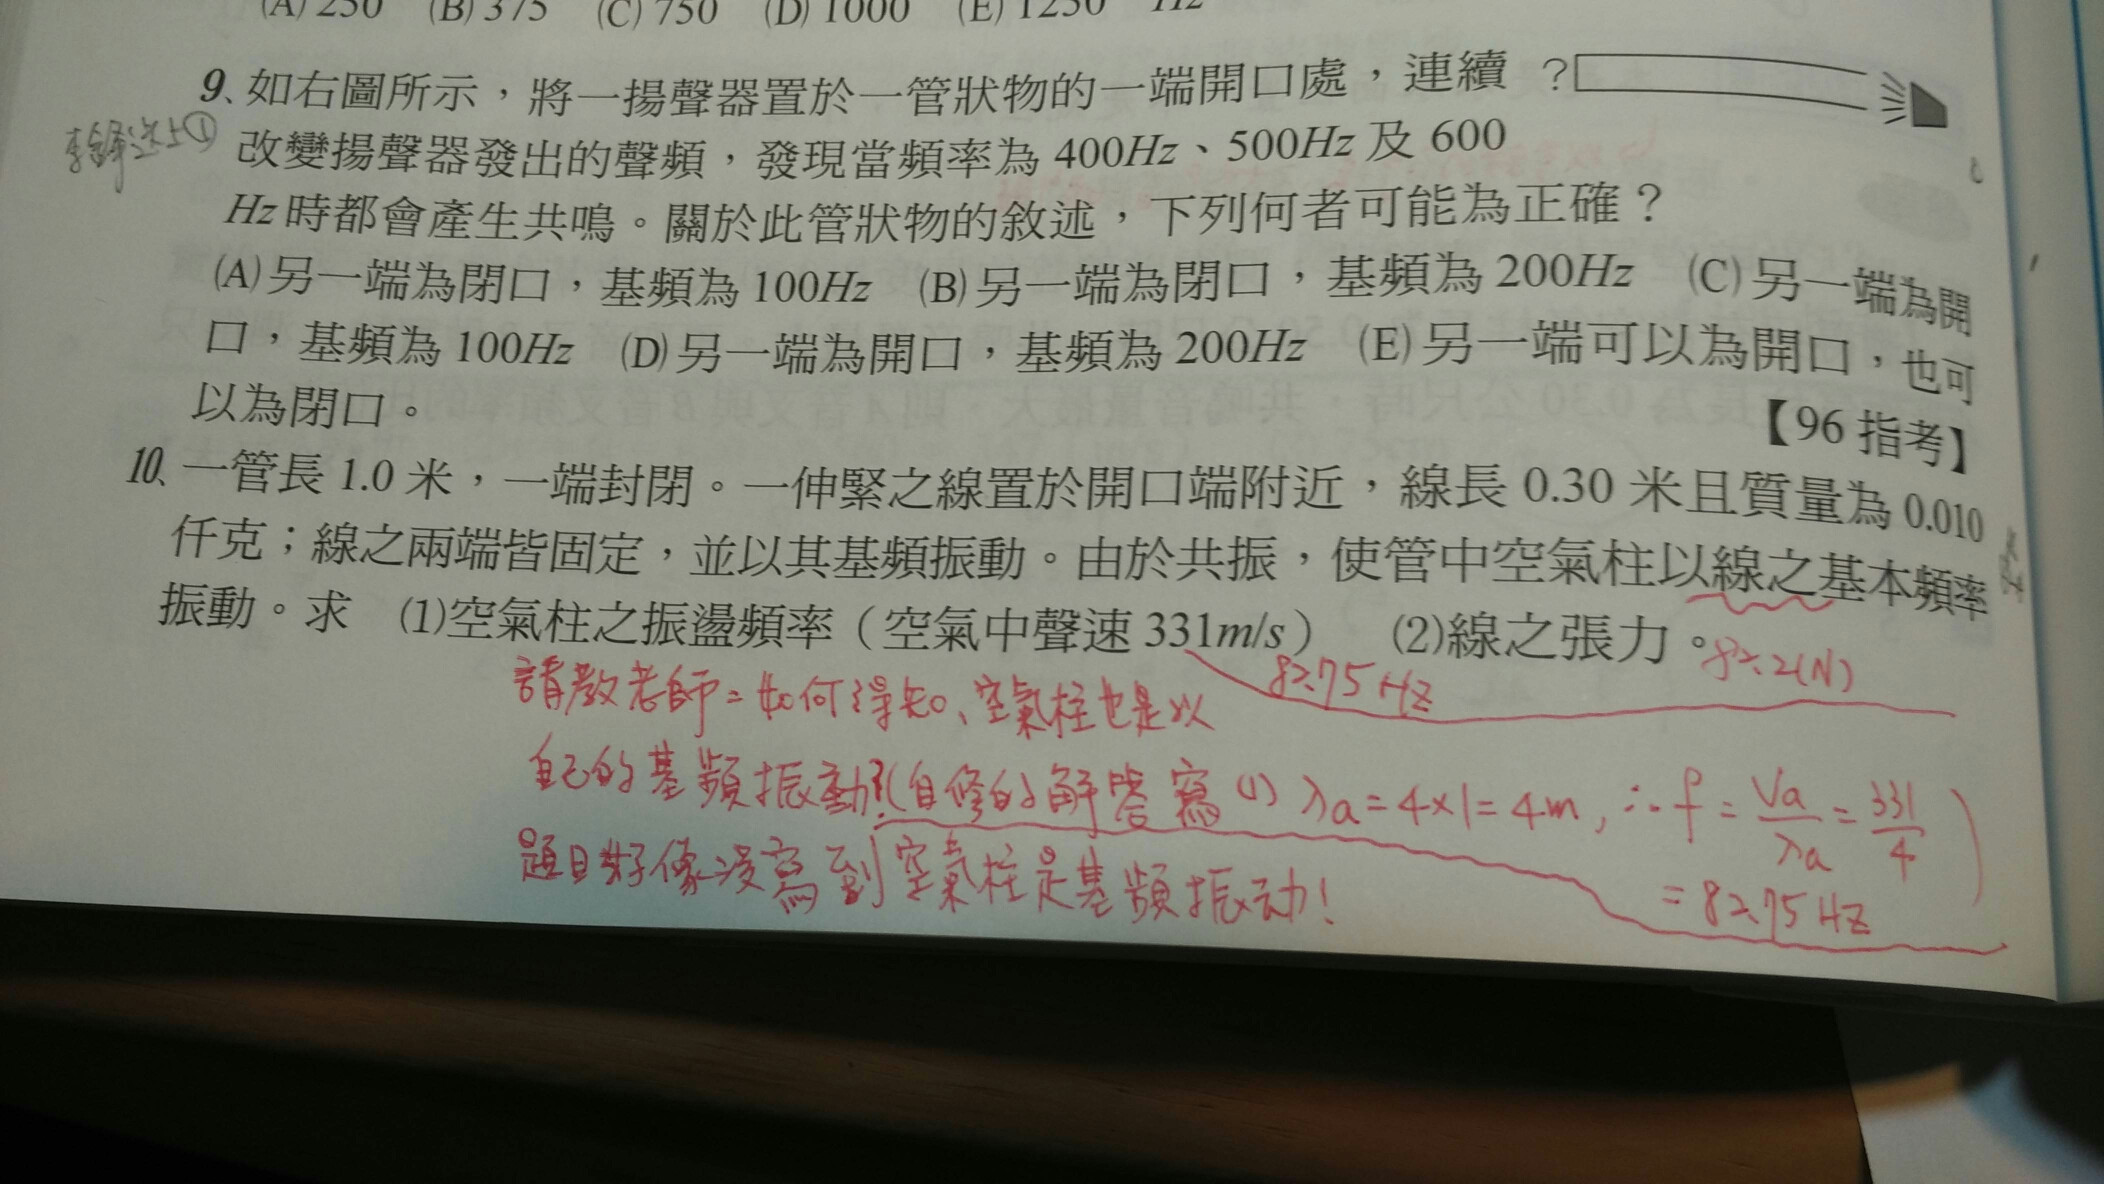 (A) 250 (B) 375 (C) 750 (D) 1000 (E) 1250 Hz
9、如右圖所示，將一揚聲器置於一管狀物的一端開口處，連續 ?
改變揚聲器發出的聲頻，發現當頻率為 400Hz、500Hz 及 600
Hz 時都會產生共鳴。關於此管狀物的敘述，下列何者可能為正確？
(A)另一端為閉口，基頻為 100Hz (B)另一端為閉口，基頻為 200Hz (C)另一端為開
口，基頻為 100Hz (D)另一端為開口，基頻為 200Hz (E)另一端可以為開口，也可
以為閉口。
【96 指考】
10、一管長 1.0 米，一端封閉。一伸緊之線置於開口端附近，線長 0.30 米且質量為 0.010
仟克；線之兩端皆固定，並以其基頻振動。由於共振，使管中空氣柱以線之基本頻率
振動。求 (1)空氣柱之振盪頻率（空氣中聲速 331m/s） (2)線之張力。
82.75 Hz 82.2(N)
請教老師=如何得知、空氣柱也是以
自己的基頻振動?(自修的解答寫 (1) λa=4×1=4m, ∴f=Va/λa=331/4
=82.75Hz)
題目好像沒寫到空氣柱是基頻振动!